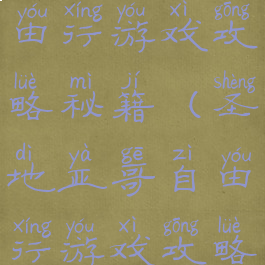 yóu xíng yóu xì gōng
由行游戏攻
lüè mì jí shèng
略秘籍（圣
dì yà gē zì yóu
地亚哥自由
xíng yóu xì gōng lüè
行游戏攻略